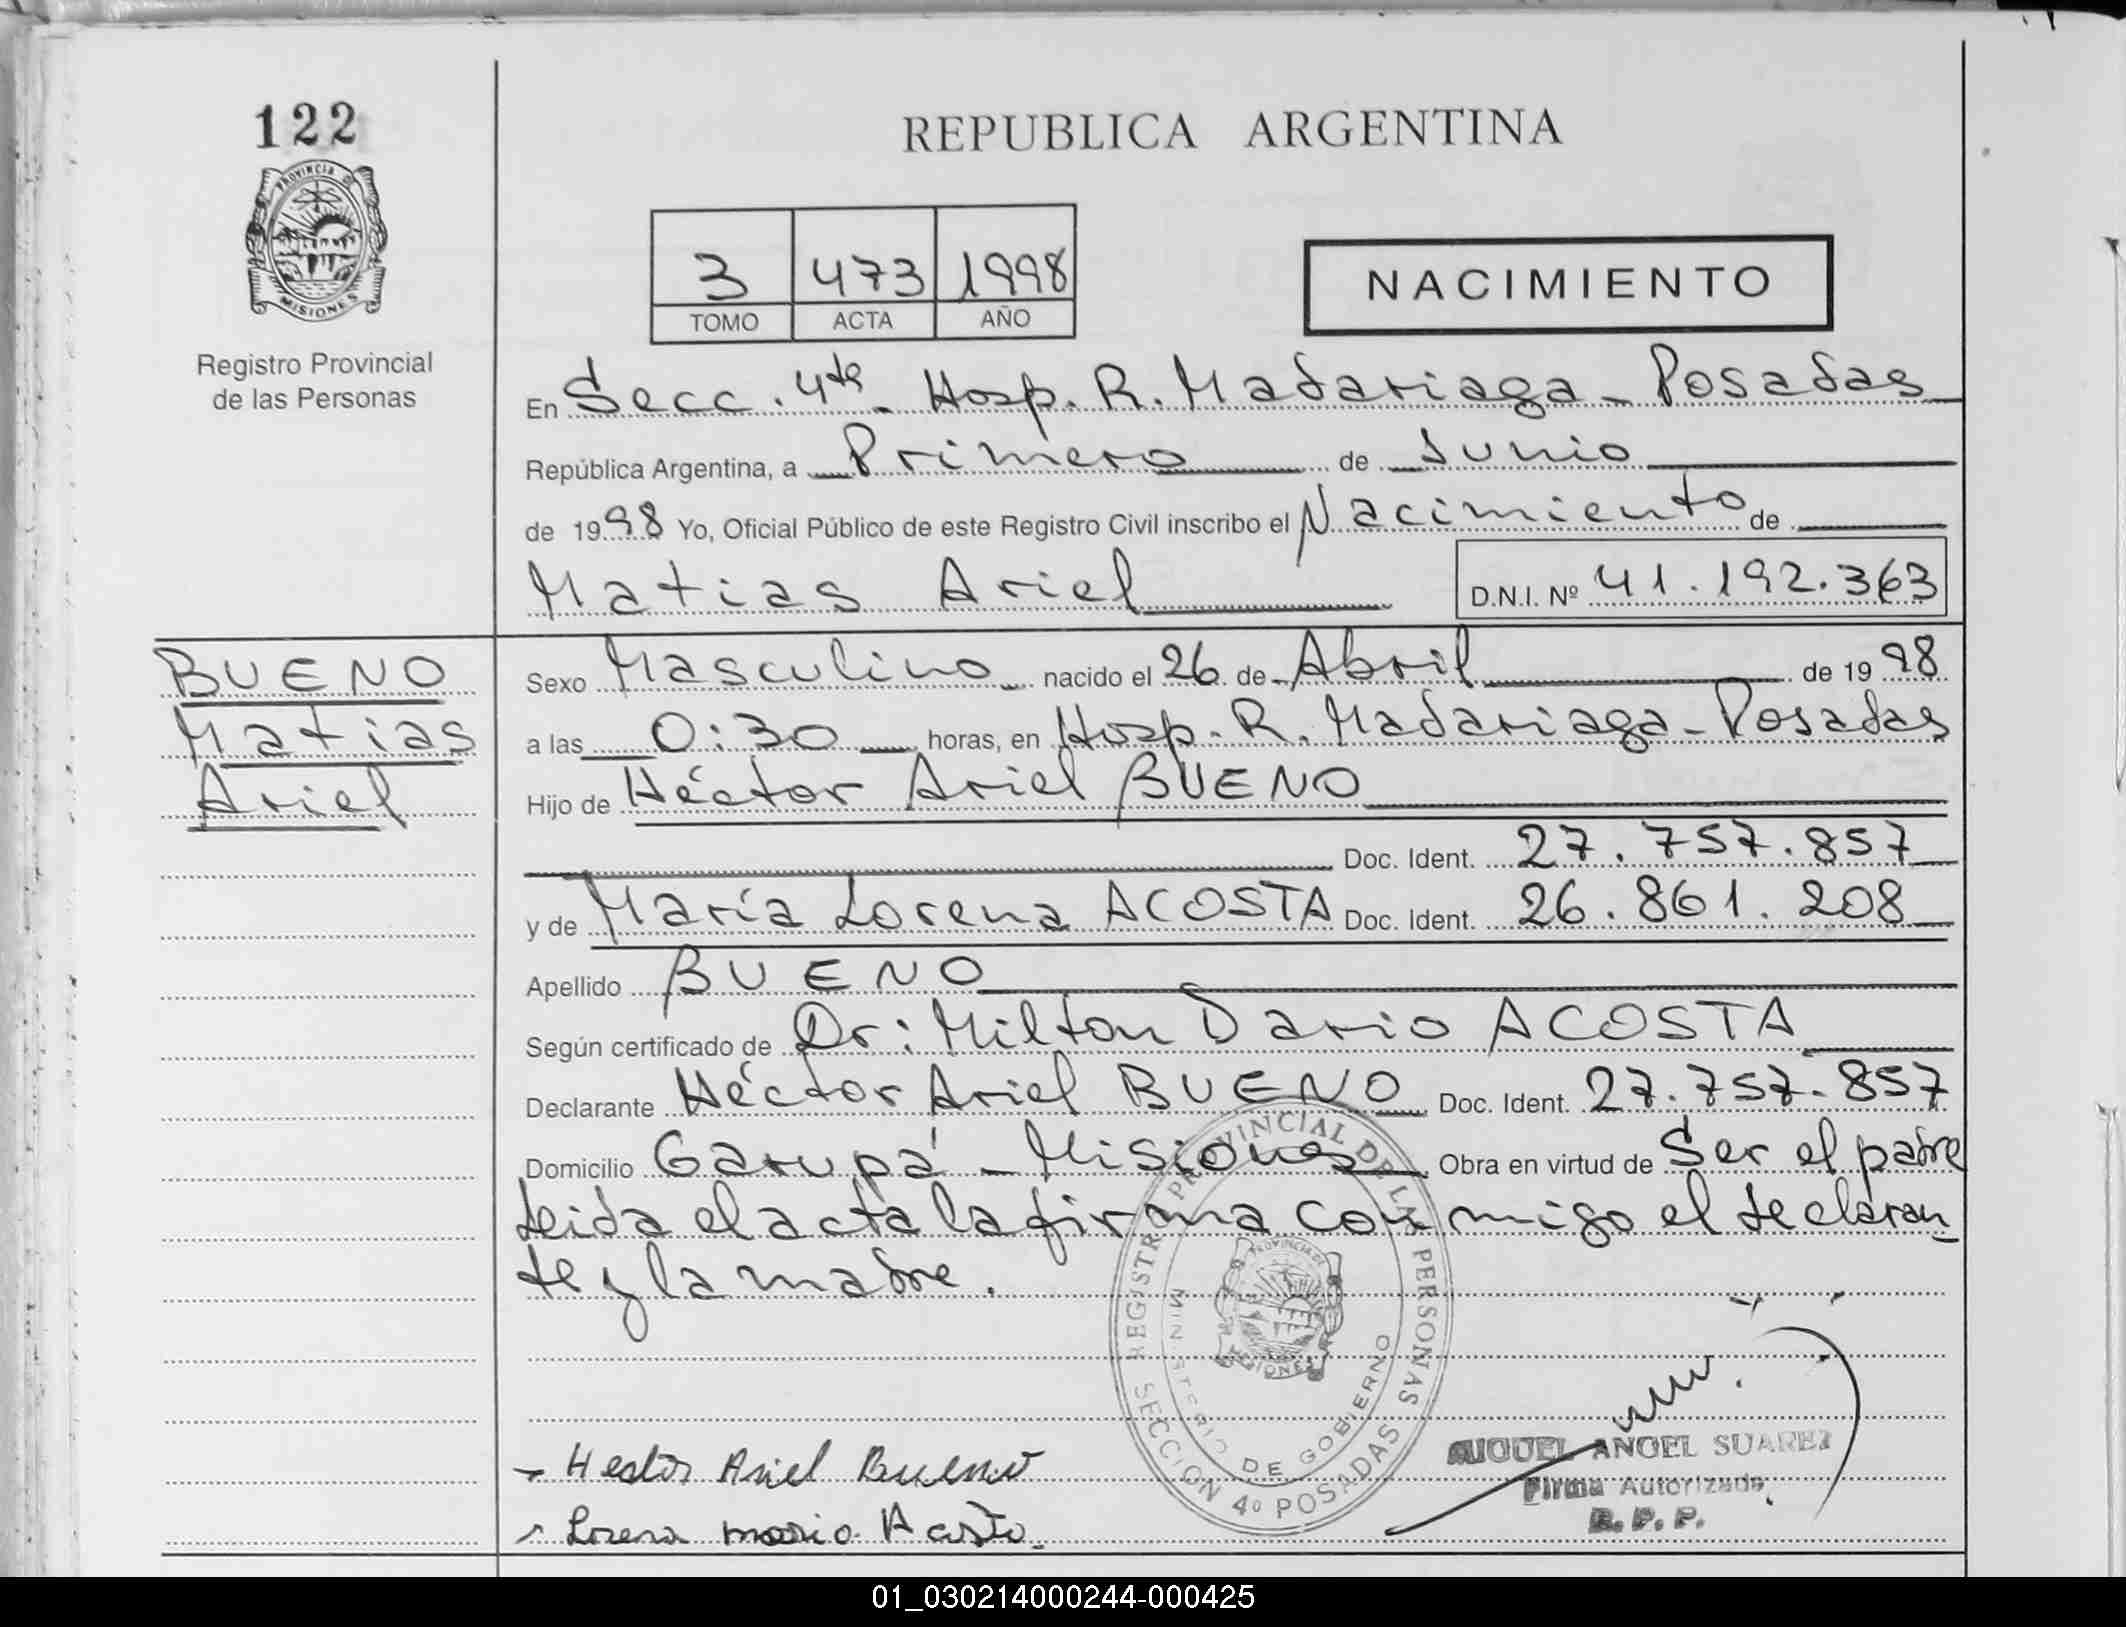 122
PROVINCIA DE
MISIONES
Registro Provincial
de las Personas
REPUBLICA ARGENTINA
3 473 1998
TOMO ACTA AÑO
NACIMIENTO
En Secc. 4ta - Hosp. R. Madariaga - Posadas
República Argentina, a Primero de Junio
de 1998 Yo, Oficial Público de este Registro Civil inscribo el Nacimiento de
Matias Ariel D.N.I. Nº 41.192.363
BUENO
Matias
Ariel
Sexo Masculino nacido el 26 de Abril de 1998
a las 0:30 horas, en Hosp. R. Madariaga - Posadas
Hijo de Héctor Ariel BUENO
Doc. Ident. 27.757.857
y de María Lorena ACOSTA Doc. Ident. 26.861.208
Apellido BUENO
Según certificado de Dr: Milton Dario ACOSTA
Declarante Héctor Ariel BUENO Doc. Ident. 27.757.857
Domicilio Garupá - Misiones Obra en virtud de Ser el padre
leida el acta la firma con migo el declaran
te y la madre.
REGISTRO PROVINCIAL DE LAS PERSONAS
MINISTERIO DE GOBIERNO
SECCION 4º POSADAS
PROVINCIA DE
MISIONES
- Hector Ariel Bueno
- Lorena maria Acosta
MIGUEL ANGEL SUAREZ
Firma Autorizada
R. P. P.
01_030214000244-000425